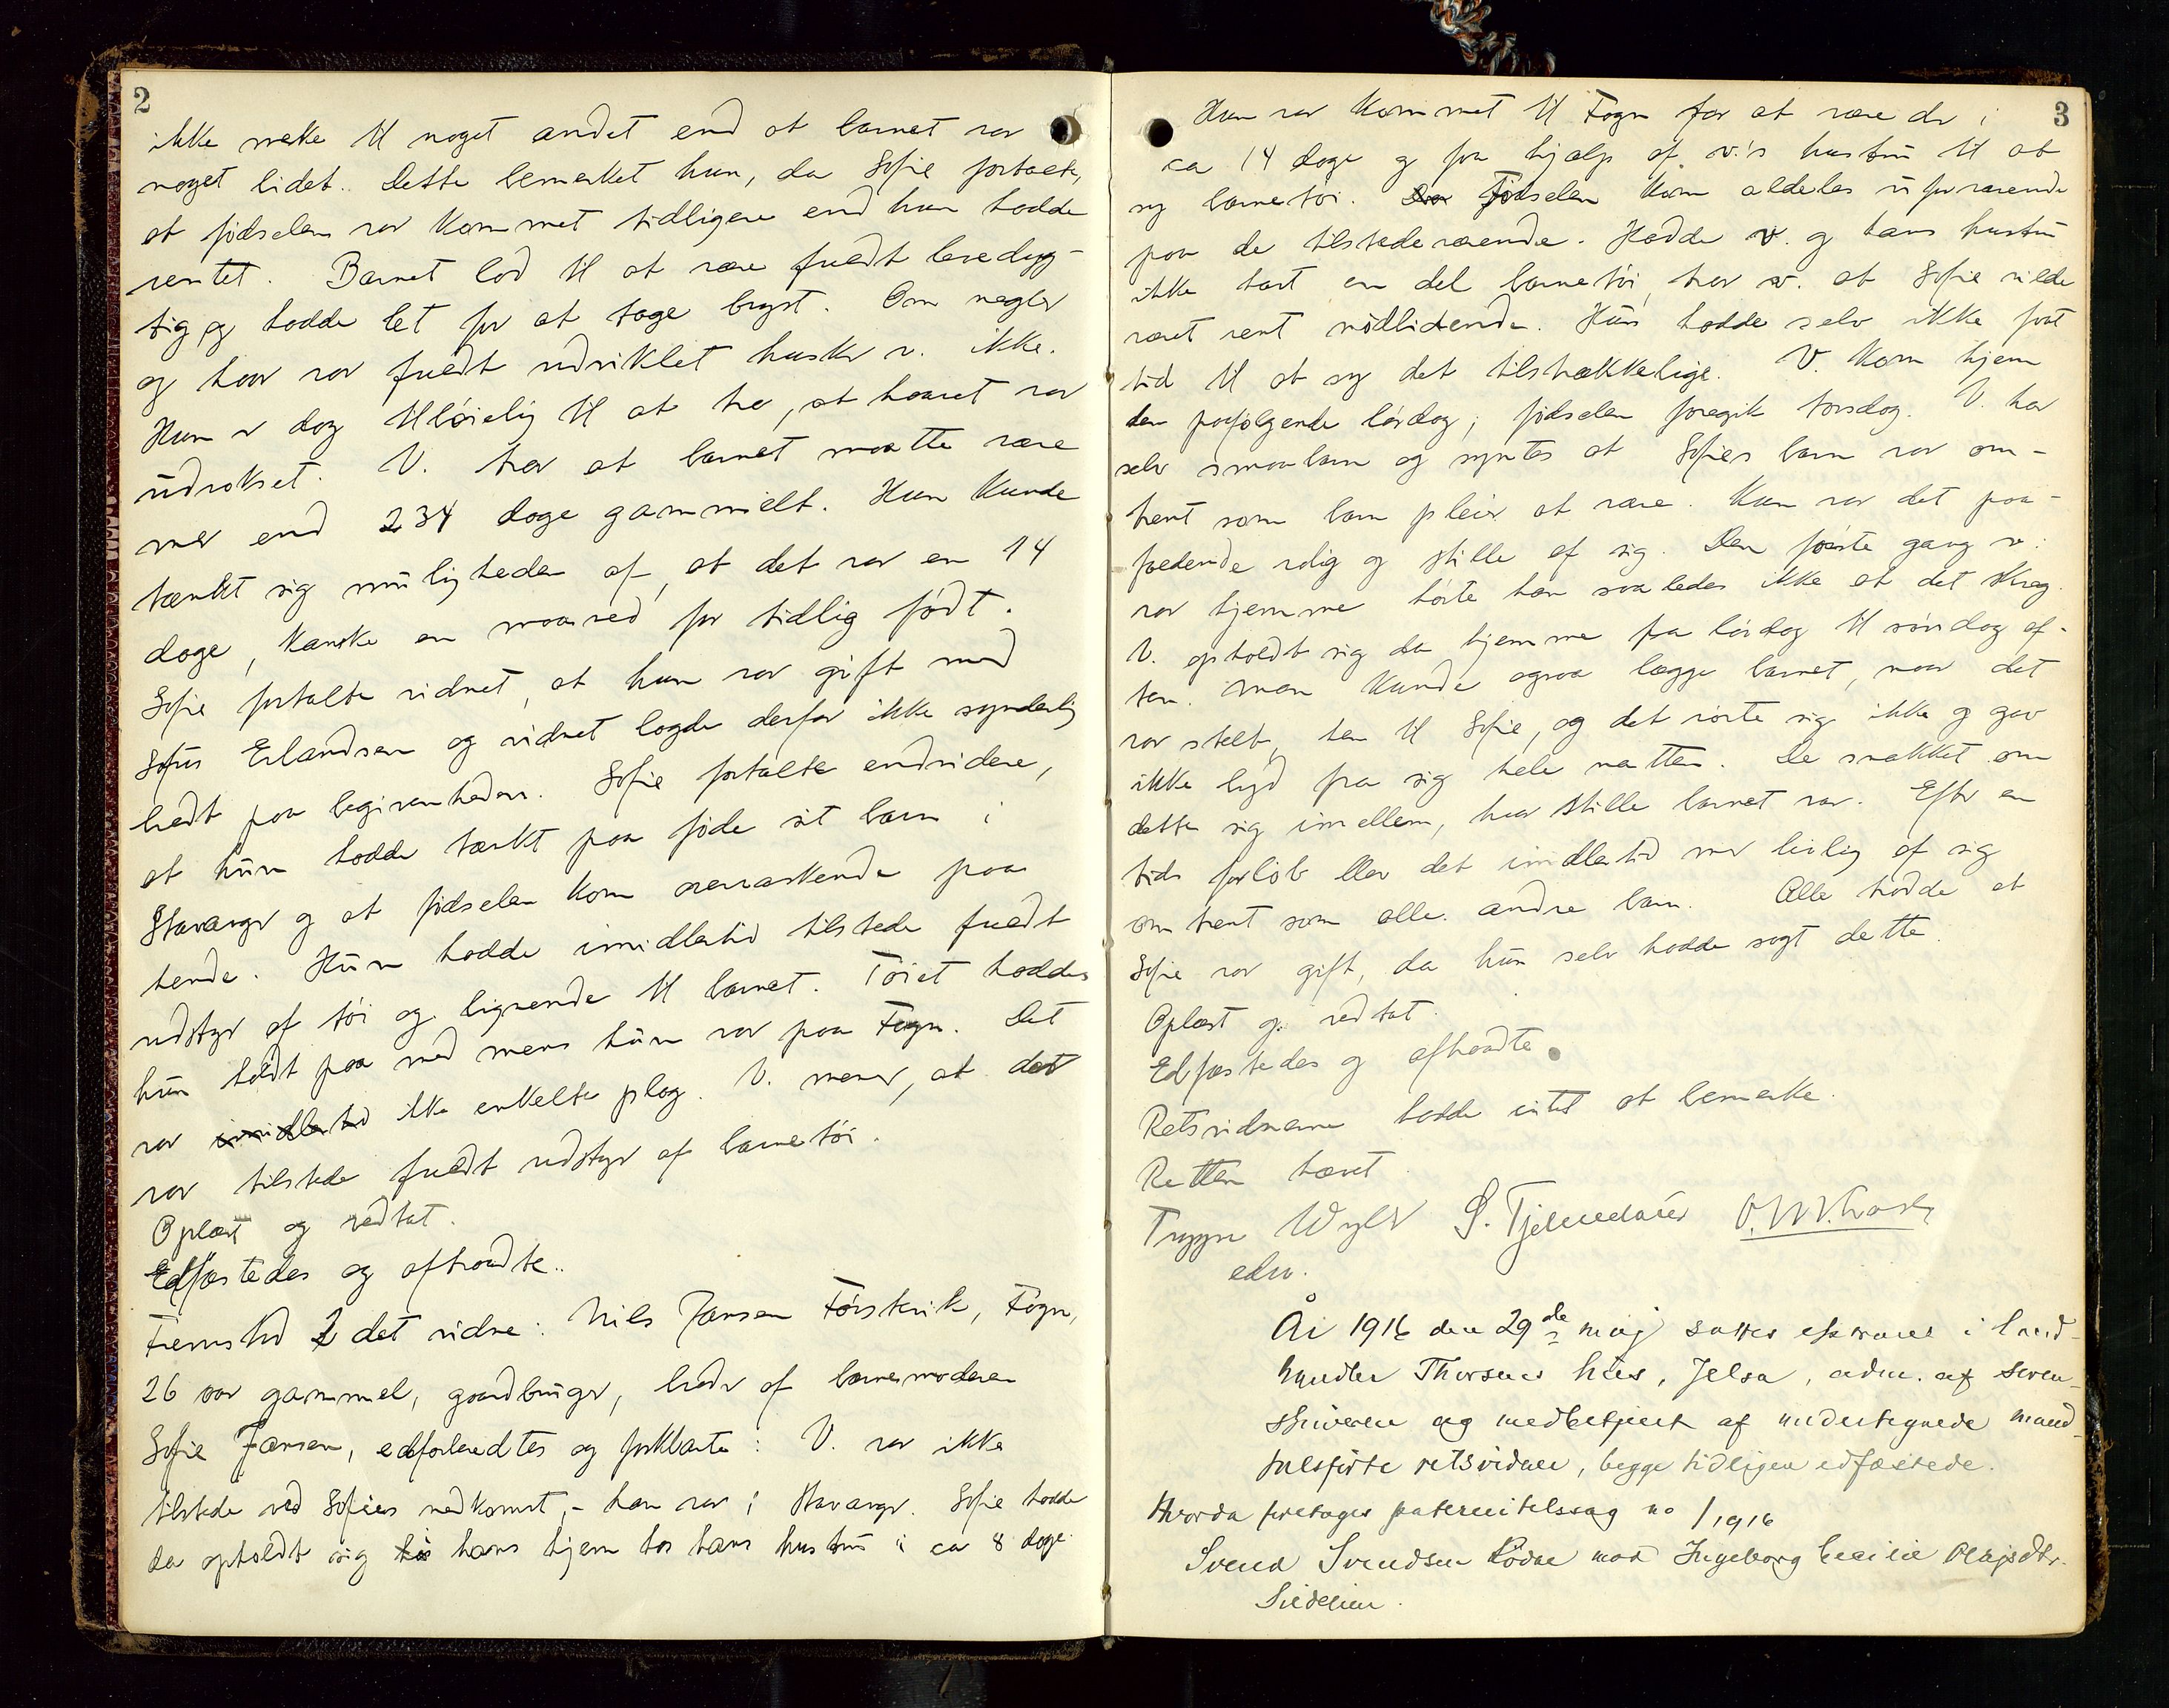 2
ikke merke til noget andet end at barnet var
noget lidet. Dette bemerket hun, da Sofie fortalte,
at fødselen var kommet tidligere end hun hadde
ventet. Barnet lod til at være fuldt levedyg-
tig og hadde let for at tage bryst. Om negler
og haar var fuldt udviklet husker v. ikke.
Hun er dog tilbøielig til at tro, at haaret var
udvokset. V. tror at barnet maatte være
mer end 234 dage gammelt. Hun kunde
tænkt sig muligheden af, at det var en 14
dage, kanske en maaned for tidlig født.
Sofie fortalte vidnet, at hun var gift med
Sofus Erlandsen og vidnet lagde derfor ikke synderlig
bredt paa begivenheden. Sofie fortalte endvidere,
at hun hadde tænkt paa føde sit barn i
Stavanger og at fødselen kom overraskende paa
hende. Hun hadde imidlertid tilstede fuldt
udstyr af tøi og lignende til barnet. Tøiet hadde
hun holdt paa med mens hun var paa Fogn. Det
var imidlertid ikke enkelte plag. V. mener, at det
var tilstede fuldt udstyr af barnetøi.
Oplæst og vedtat.
Edfæstedes og aftraadte.
Fremstod 2 det vidne: Nils Jansen Førsvik, Fogn,
26 aar gammel, gaardbruger, broder af barnemoderen
Sofie Jansen, edforberedtes og forklarte: V. var ikke
tilstede ved Sofies nedkomst, - han var i Stavanger. Sofie hadde
da opholdt sig hos hans hjem hos hans hustru i ca 8 dage.
3
Hun var kommet til Fogn for at være der i
ca 14 dage og faa hjælp af v.'s hustru til at
sy barnetøi. Da Fødselen kom aldeles uforvarende
paa de tilstedeværende. Hadde v. og hans hustru
ikke havt en del barnetøi, tror v. at Sofie vilde
været rent nødlidende. Hun hadde selv ikke faat
tid til at sy det tilstrækkelige. V. kom hjem
den paafølgende lørdag; fødselen foregik torsdag. V. har
selv smaabarn og syntes at Sofies barn var om-
trent som barn pleier at være. Kun var det paa-
faldende rolig og stille af sig. Den første gang v.
var hjemme hørte han saaledes ikke at det skreg.
V. opholdt sig da hjemme fra lørdag til søndag af-
ten. Man kunde ogsaa lægge barnet, naar det
var stelt, hen til Sofie, og det rørte sig ikke og gav
ikke lyd fra sig hele natten. De snakket om
dette sig imellem, hvor stille barnet var. Efter en
tids forløb blev det imidlertid mer livlig af sig
omtrent som alle andre barn. Alle trodde at
Sofie var gift, da hun selv hadde sagt dette.
Oplæst og vedtat.
Edfæstedes og aftraadte.
Retsvidnerne hadde intet at bemerke.
Retten hævet.
Trygve Wyller S. Tjelmedane
edsv.
År 1916 den 29de maj sattes extraret i land-
handler Thorsens hus, Jelsa, adm. af soren-
skriveren og medbetjent af undertegnede mand-
talsførte retsvidner, begge tidligere edfæstede.
Hvorda foretages paternitetssag no 1/1916
Svend Svendsen mod Ingeborg Cecilie